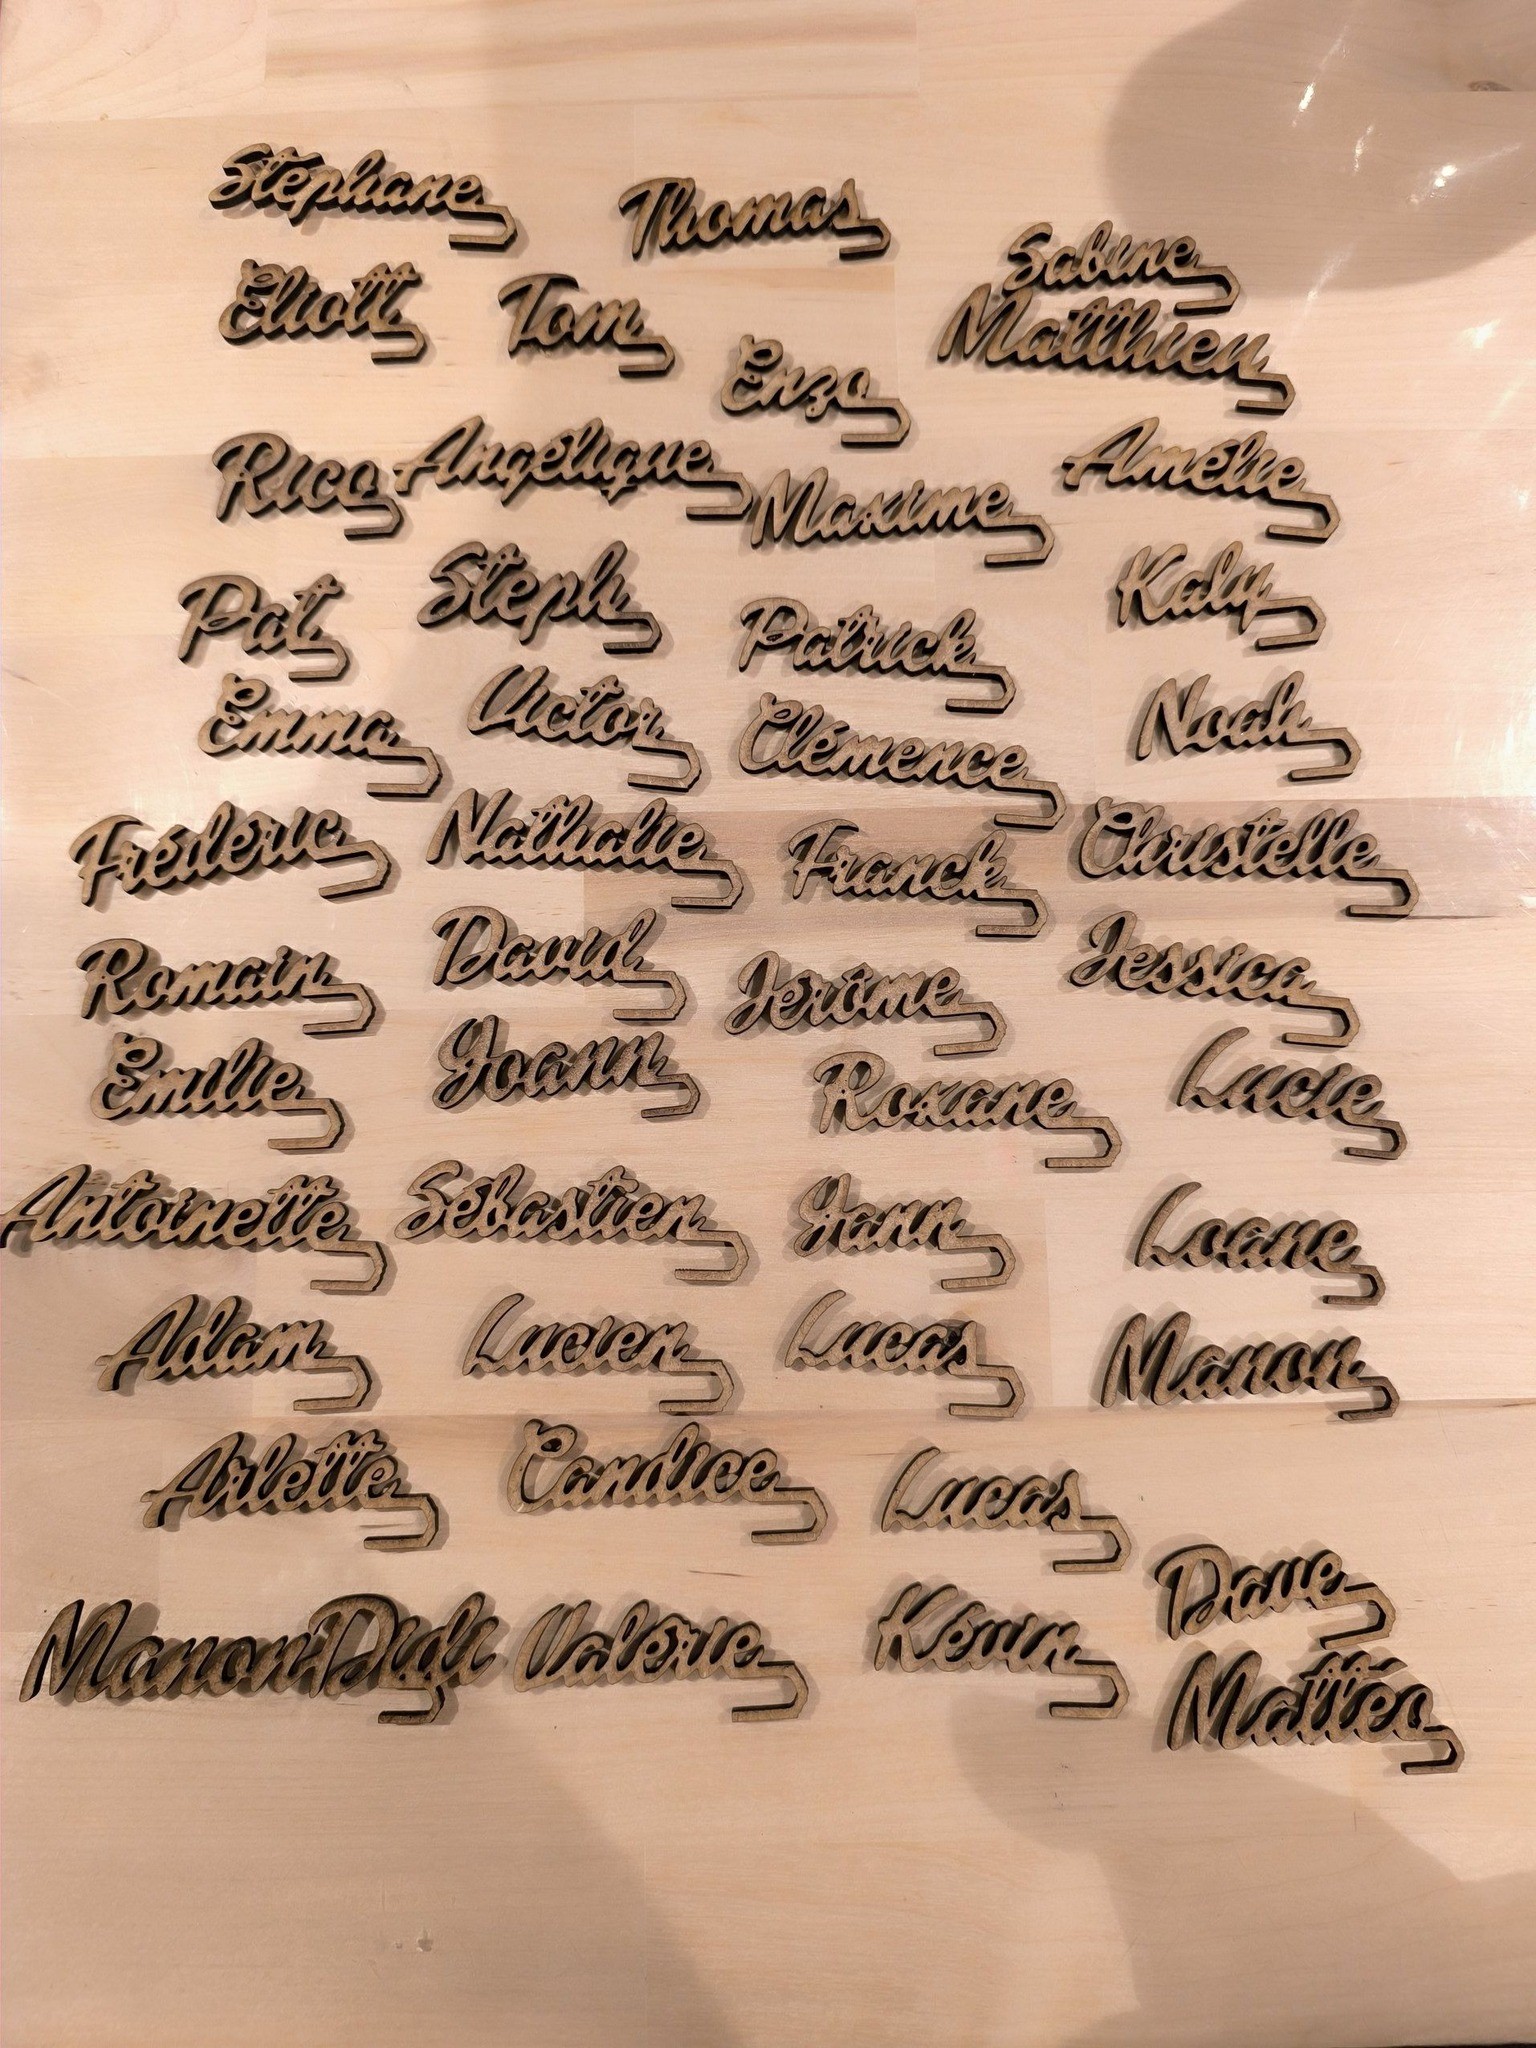 Stéphane Thomas
Sabine
Eliott Tom Matthieu
Enzo
Rico Angélique Maxime Amélie
Pat Steph Patrick Kaly
Emma Victor Clémence Noah
Fréderic Nathalie Franck Christelle
Romain David Jérôme Jessica
Emilie Yoann Roxane Lucie
Antoinette Sébastien Yann Loane
Adam Lucien Lucas Manon
Arlette Candice Lucas
Dave
Manon Didi Valérie Kévin
Mattéo